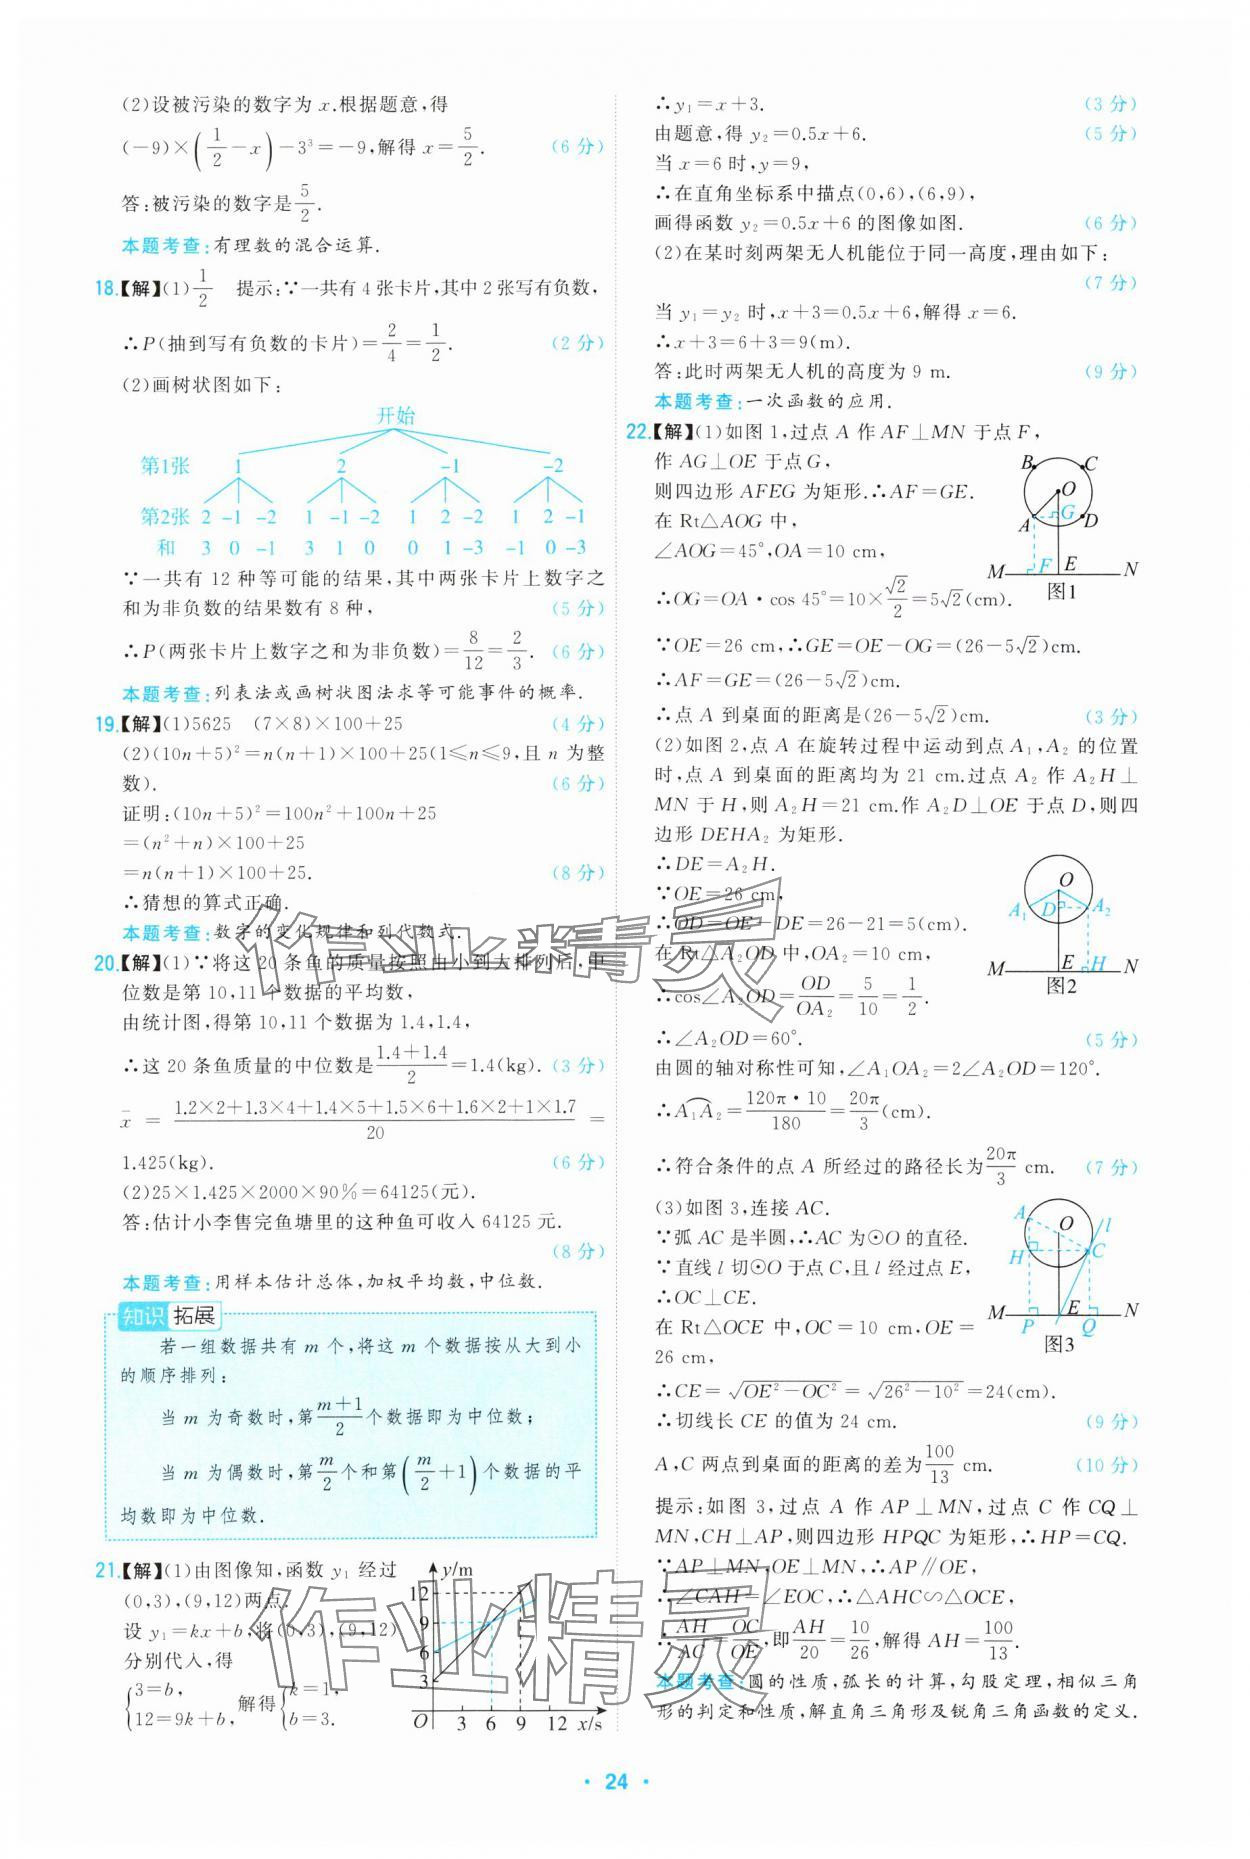 (2)设被污染的数字为 x.根据题意,得
(-9)×(1/2-x)-3³=-9,解得 x=5/2. (6 分)
答:被污染的数字是5/2.
本题考查:有理数的混合运算.
18.【解】(1)1/2 提示:∵一共有 4 张卡片,其中 2 张写有负数,
∴P(抽到写有负数的卡片)=2/4=1/2. (2 分)
(2)画树状图如下:
开始
第1张 1 2 -1 -2
第2张 2 -1 -2 1 -1 -2 1 2 -2 1 2 -1
和 3 0 -1 3 1 0 0 1 -3 -1 0 -3
∵一共有 12 种等可能的结果,其中两张卡片上数字之
和为非负数的结果数有 8 种, (5 分)
∴P(两张卡片上数字之和为非负数)=8/12=2/3. (6 分)
本题考查:列表法或画树状图法求等可能事件的概率.
19.【解】(1)5625 (7×8)×100+25 (4 分)
(2)(10n+5)²=n(n+1)×100+25(1≤n≤9,且 n 为整
数). (6 分)
证明:(10n+5)²=100n²+100n+25
=(n²+n)×100+25
=n(n+1)×100+25. (8 分)
∴猜想的算式正确.
本题考查:数字的变化规律和列代数式.
20.【解】(1)∵将这 20 条鱼的质量按照由小到大排列后,中
位数是第 10,11 个数据的平均数,
由统计图,得第 10,11 个数据为 1.4,1.4,
∴这 20 条鱼质量的中位数是(1.4+1.4)/2=1.4(kg). (3 分)
x̄=(1.2×2+1.3×4+1.4×5+1.5×6+1.6×2+1×1.7)/20=
1.425(kg). (6 分)
(2)25×1.425×2000×90%=64125(元).
答:估计小李售完鱼塘里的这种鱼可收入 64125 元.
(8 分)
本题考查:用样本估计总体,加权平均数,中位数.
知识 拓展
若一组数据共有 m 个,将这 m 个数据按从大到小
的顺序排列:
当 m 为奇数时,第(m+1)/2个数据即为中位数;
当 m 为偶数时,第m/2个和第(m/2+1)个数据的平
均数即为中位数.
21.【解】(1)由图像知,函数 y₁ 经过
(0,3),(9,12)两点.
设 y₁=kx+b,将(0,3),(9,12)
分别代入,得
{3=b, 12=9k+b, 解得{k=1, b=3.
y/m
12
9
6
3
O 3 6 9 12 x/s
∴y₁=x+3. (3 分)
由题意,得 y₂=0.5x+6. (5 分)
当 x=6 时,y=9,
∴在直角坐标系中描点(0,6),(6,9),
画得函数 y₂=0.5x+6 的图像如图. (6 分)
(2)在某时刻两架无人机能位于同一高度,理由如下:
(7 分)
当 y₁=y₂ 时,x+3=0.5x+6,解得 x=6.
∴x+3=6+3=9(m).
答:此时两架无人机的高度为 9 m. (9 分)
本题考查:一次函数的应用.
22.【解】(1)如图 1,过点 A 作 AF⊥MN 于点 F,
作 AG⊥OE 于点 G,
则四边形 AFEG 为矩形.∴AF=GE.
在 Rt△AOG 中,
∠AOG=45°,OA=10 cm,
∴OG=OA·cos 45°=10×√2/2=5√2(cm).
B C O A G D M F E N
图1
∵OE=26 cm,∴GE=OE-OG=(26-5√2)cm.
∴AF=GE=(26-5√2)cm.
∴点 A 到桌面的距离是(26-5√2)cm. (3 分)
(2)如图 2,点 A 在旋转过程中运动到点 A₁,A₂ 的位置
时,点 A 到桌面的距离均为 21 cm.过点 A₂ 作 A₂H⊥
MN 于 H,则 A₂H=21 cm.作 A₂D⊥OE 于点 D,则四
边形 DEHA₂ 为矩形.
∴DE=A₂H.
∵OE=26 cm,
∴OD=OE-DE=26-21=5(cm).
在 Rt△A₂OD 中,OA₂=10 cm,
∴cos∠A₂OD=OD/OA₂=5/10=1/2.
O A₁ D A₂ M E H N
图2
∴∠A₂OD=60°. (5 分)
由圆的轴对称性可知,∠A₁OA₂=2∠A₂OD=120°.
∴A₁A₂=(120π·10)/180=20π/3(cm).
∴符合条件的点 A 所经过的路径长为20π/3 cm. (7 分)
(3)如图 3,连接 AC.
∵弧 AC 是半圆,∴AC 为⊙O 的直径.
∵直线 l 切⊙O 于点 C,且 l 经过点 E,
∴OC⊥CE.
在 Rt△OCE 中,OC=10 cm,OE=
26 cm,
A O l H C M P E Q N
图3
∴CE=√(OE²-OC²)=√(26²-10²)=24(cm).
∴切线长 CE 的值为 24 cm. (9 分)
A,C 两点到桌面的距离的差为100/13 cm. (10 分)
提示:如图 3,过点 A 作 AP⊥MN,过点 C 作 CQ⊥
MN,CH⊥AP,则四边形 HPQC 为矩形,∴HP=CQ.
∵AP⊥MN,OE⊥MN,∴AP∥OE,
∴∠CAH=∠EOC,∴△AHC∽△OCE,
∴AH/AC=OC/OE,即AH/20=10/26,解得 AH=100/13.
本题考查:圆的性质,弧长的计算,勾股定理,相似三角
形的判定和性质,解直角三角形及锐角三角函数的定义.
作业精灵
作业精灵
· 24 ·